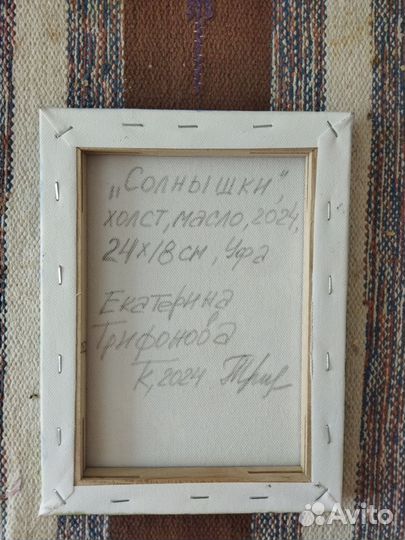 „Солнышки",
холст, масло, 2024,
24х18 см, Уфа
Екатерина
Трифонова
2024
Avito